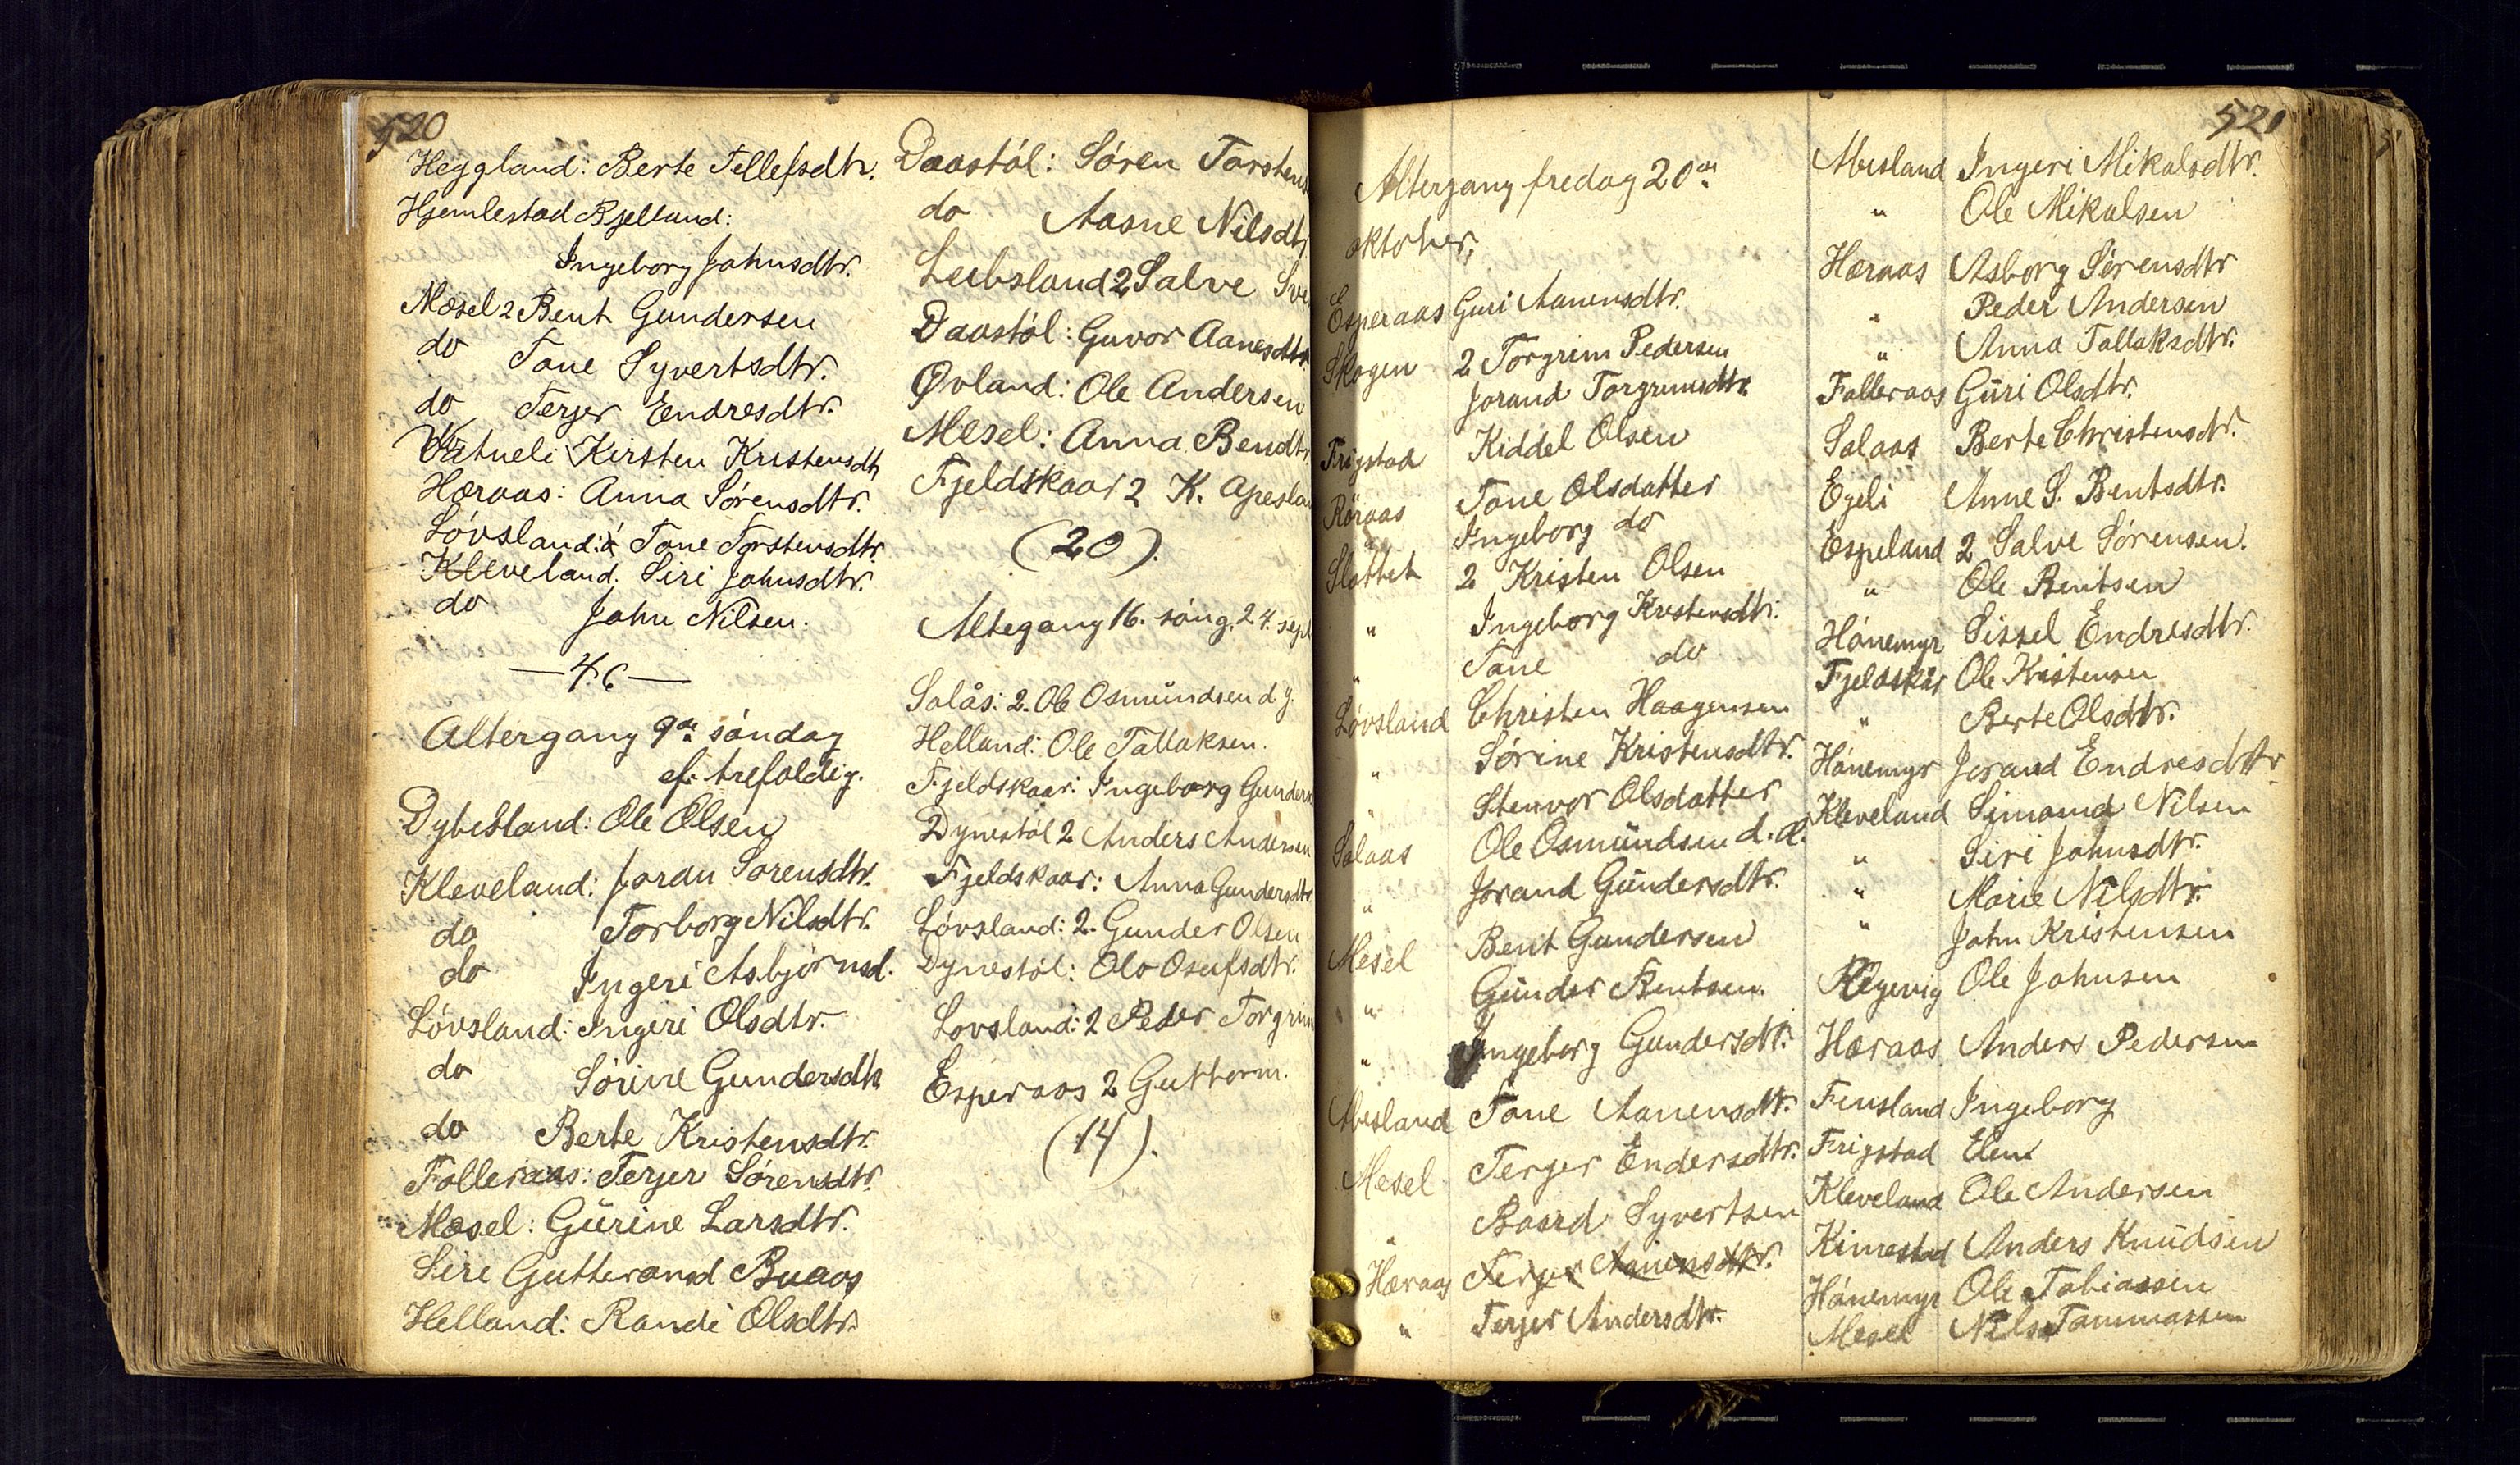 520
Heggland: Berte Tellefsdtr.
Hjemlestad Bjelland:
Ingeborg Johnsdtr.
Mæsel 2 Bent Gundersen
do Tone Syvertsdtr.
do Terjer Endresdtr.
Kirsten Kristensdtr
Høraas: Anna Sørensdtr.
Lövsland: Tone Torstensdtr.
Kleveland. Siri Johnsdtr.
do John Nilsen.
— 46 —
Altergang 9de söndag
ef. trefoldig.
Dybesland: Ole Olsen
Kleveland: Joran Sorensdtr.
do Torborg Nilsdtr.
do Ingeri Asbjörnsd.
Lövsland: Ingeri Olsdtr.
do Sörine Gundersdtr
do Berte Kristensdtr.
Folleraas: Terjer Sörensdtr.
Mæsel: Gürine Larsdtr.
Siri Gutterand Buaas
Helland: Randi Olsdtr.
Daastöl: Sören Torstens
do Aasne Nilsdtr
2 Salve Sve
Daastöl: Guvor Aanesdtr.
Øvland: Ole Andersen
Mesel: Anna Bendtr
Fjeldskaar 2 K. Apeslan
(20).
Altegang 16. söng. 24. sept
Salås: 2. Ole Osmündsen d. y.
Helland: Ole Tallaksen.
Fjeldskaar: Ingeborg Gunders
Dynestöl 2 Anders Andersen
Fjeldskaar: Anna Gundersdtr
Lövsland: 2. Gunder Olsen
Dynestöl: Olo Osufsdtr.
Lovsland: 2 Peder Torgrim
Esperaas 2 Guttorm.
(14).
521
Altergang fredag 20de
oktober,
Esperaas Guri Aanensdtr.
Skogen 2 Torgrim Pedersen
Jorand Torgrimsdtr.
Frigstad Kiddel Olsen
Röraas Tone Olsdatter
Ingeborg do
Slottet 2 Kristen Olsen
" Ingeborg Kristensdtr.
" Tone do
Lövsland Christen Haagensen
" Sørine Kristensdtr.
" Stenvor Olsdatter
Salaas Ole Osmündsen d. æ.
" Jorand Gündersdtr.
Mesel Bent Gundersen
" Günder Bentsen.
" Ingeborg Gundersdtr.
Abesland Tone Aanensdtr.
Mesel Terjer Endersdtr.
" Baard Syvertsen
Høraas Terjer Aanensdtr.
" Terjer Andersdtr.
Abesland Ingeri Mikalsdtr.
" Ole Mikalsen
Høraas Asborg Sörensdtr
" Peder Andersen
" Anna Tallaksdtr.
Folleraas Güri Olsdtr.
Salaas Berte Christensdtr.
Egeli Anne S. Bentsdtr.
Espeland 2 Salve Sørensen.
" Ole Bentsen
Hönemyr Sissel Endresdtr.
Fjeldskår Ole Kristensen
" Berte Olsdtr.
Hönemyr Jorand Endresdtr
Kleveland Simond Nilsen
" Siri Johnsdtr.
" Marie Nilsdtr.
" John Kristensen
Ole Johnsen
Høraas Anders Pedersen
Fensland Ingeborg
Frigstad Elen
Kleveland Ole Andersen
Kimestad Anders Knüdsen
Hönemyr Ole Tobiassen
Mesel Nils Tommassen